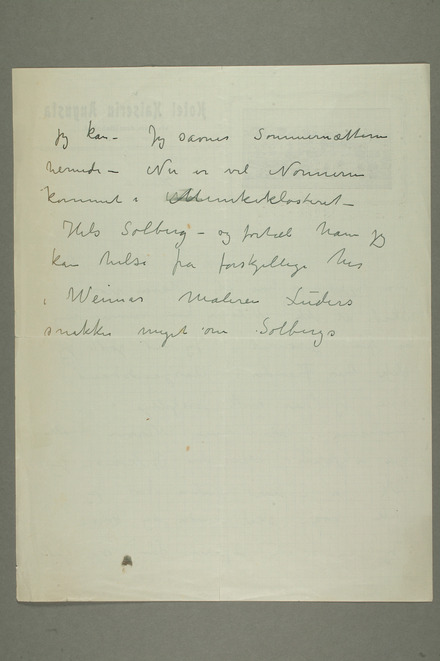 jeg kan – Jeg savner Sommernætterne
hernede – Nu er vel Nonnerne
kommet i Munkeklosteret –
Hils Solberg – og fortæl ham jeg
kan hilse fra forskjellige her
i Weimar Maleren Lüders
snakker meget om Solbergs
Hotel Kaiserin Augusta